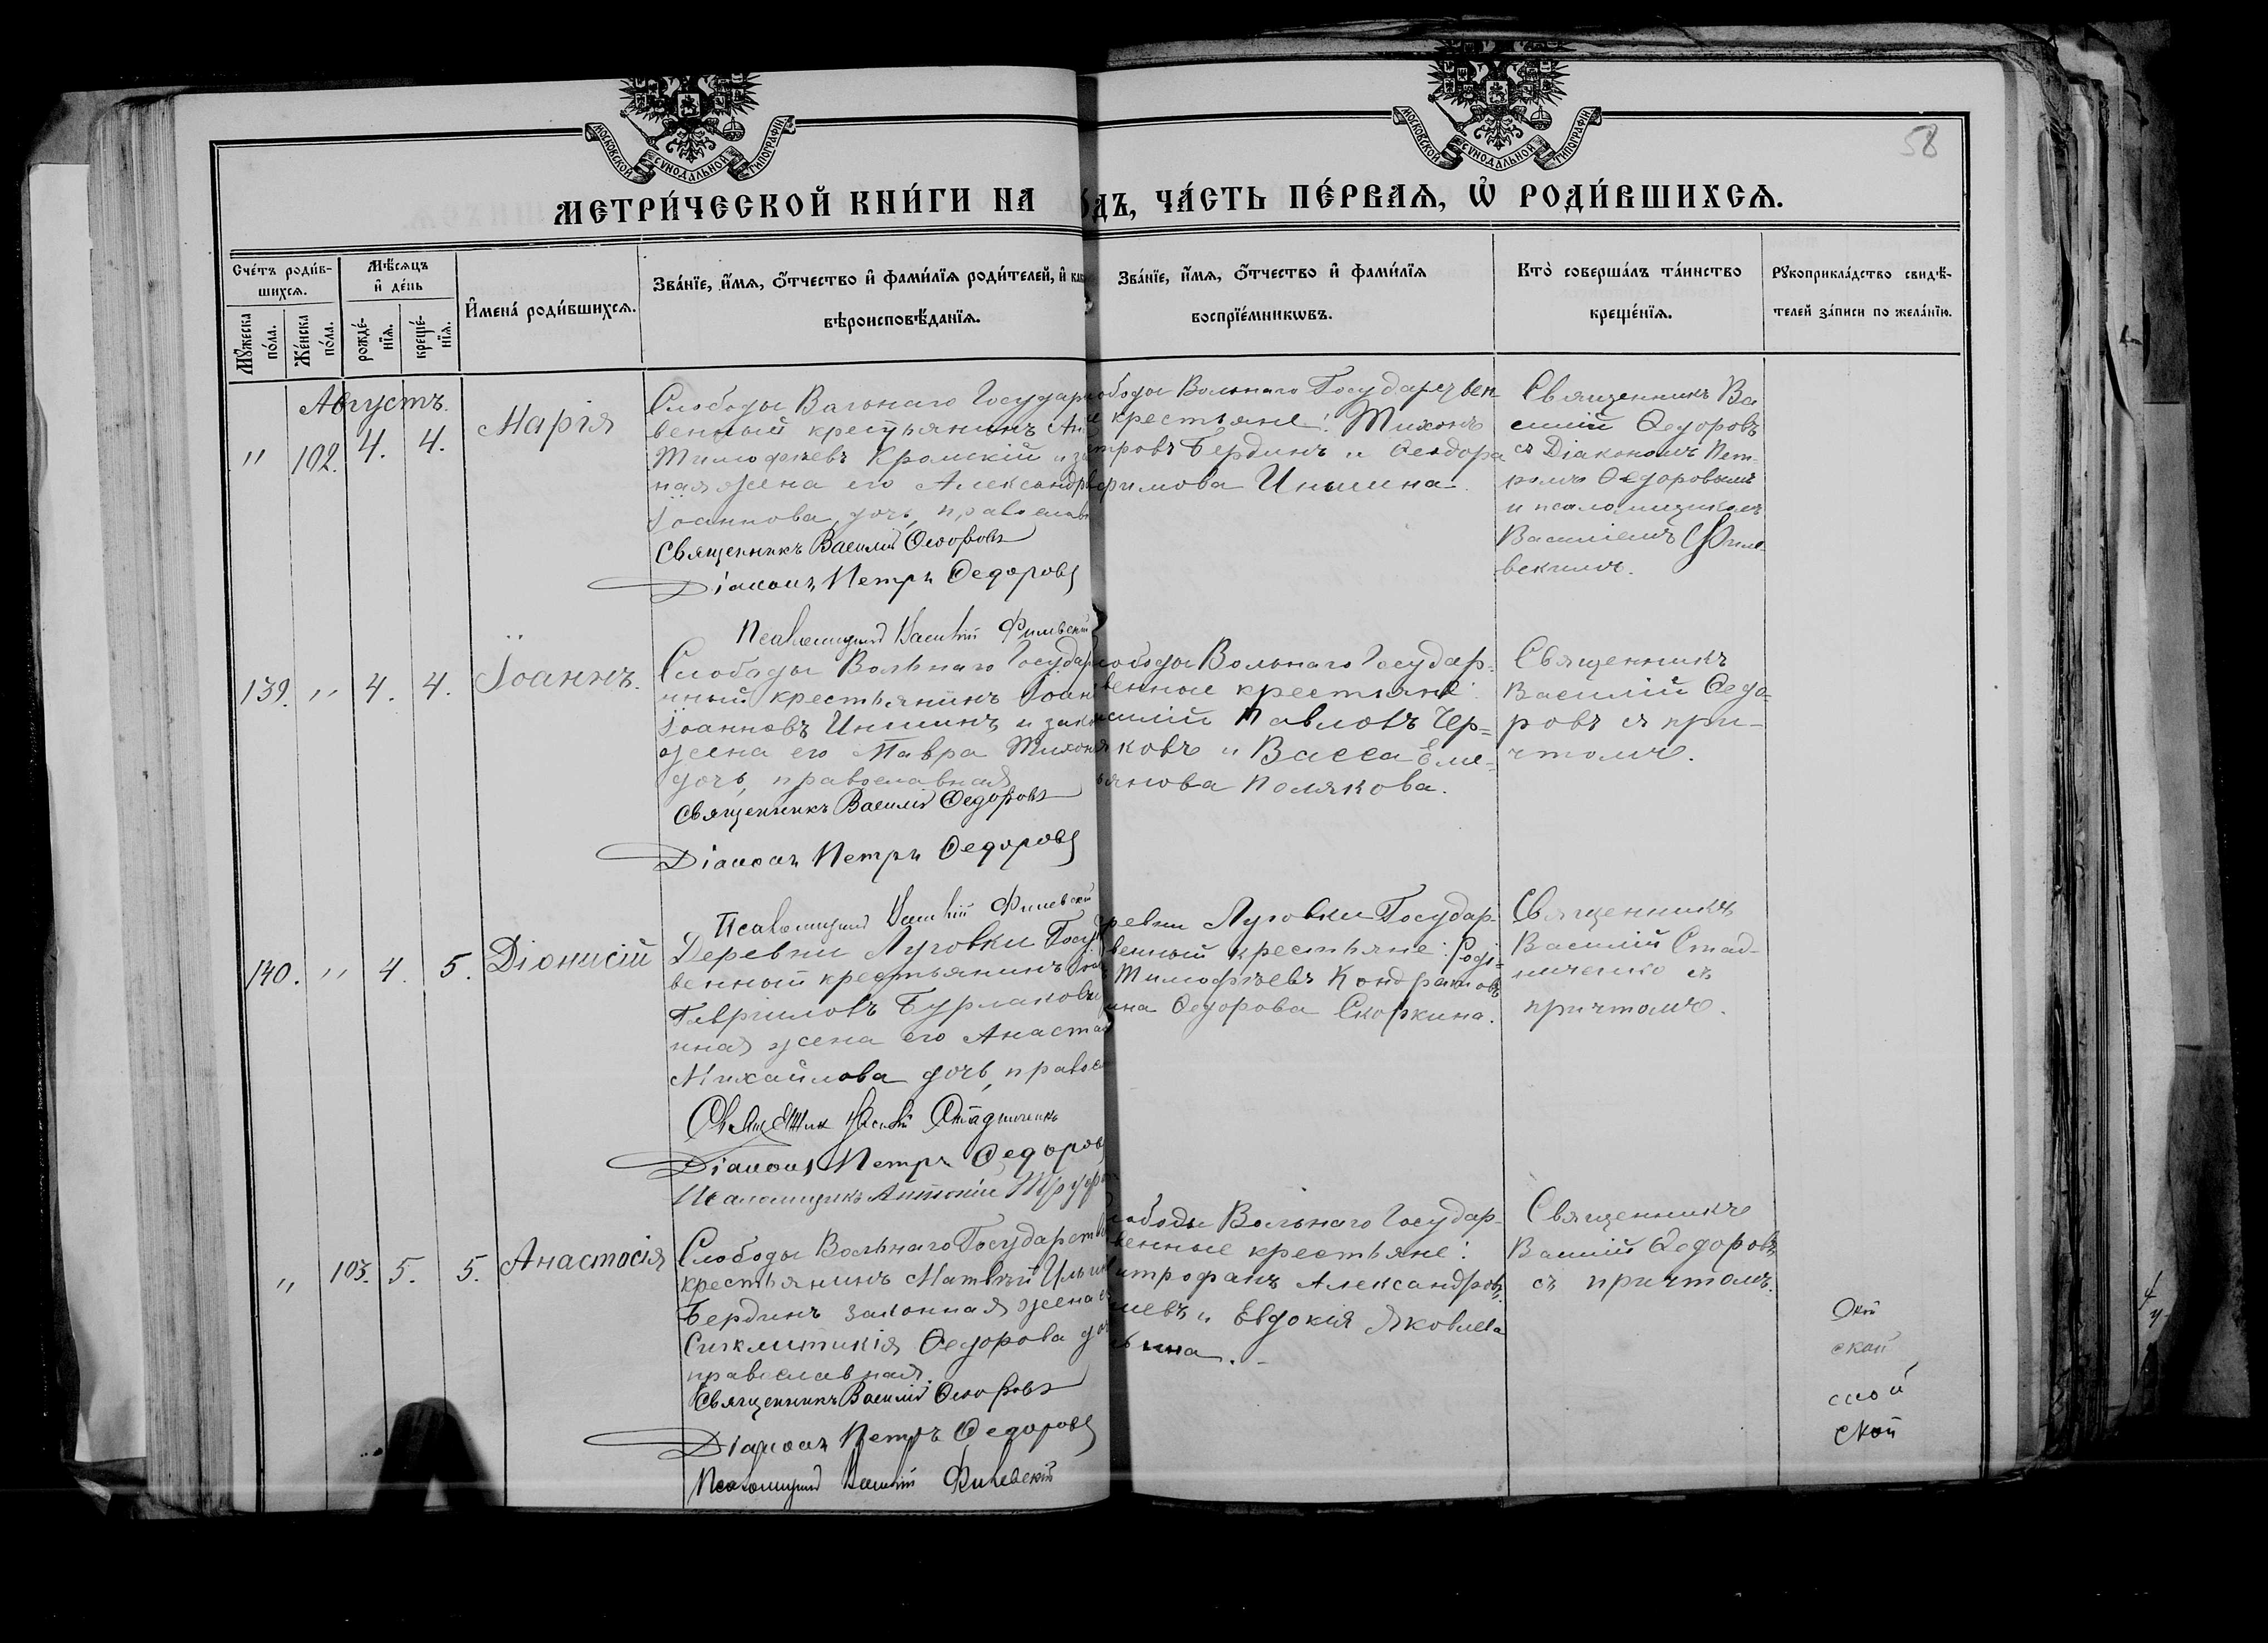 МОСКОВСКОЙ СУНОДАЛЬНОЙ ТИПОГРАФІИ
МОСКОВСКОЙ СУНОДАЛЬНОЙ ТИПОГРАФІИ
58
МЕТРИ́ЧЕСКОЙ КНИ́ГИ НА
о́дъ, ЧА́СТЬ ПЕ́РВАѦ, Ѡ҆ РОДИ́ВШИХСѦ.
Сче́тъ роди́в-
шихсѧ.
Мꙋ́жеска по́ла.
Же́нска по́ла.
Мѣ́сѧцъ и҆ де́нь
рожде́-нїѧ.
креще́-нїѧ.
И҆мена̀ роди́вшихсѧ.
Зва́нїе, и҆́мѧ, ѻ҆́тчество и҆ фами́лїѧ роди́телей, и҆ как
вѣроисповѣ́данїѧ.
Зва́нїе, и҆́мѧ, ѻ҆́тчество и҆ фами́лїѧ
воспрїе́мникѡвъ.
Кто̀ соверша́лъ та́инство
креще́нїѧ.
Рꙋкоприкла́дство свидѣ́-
телей за́писи по жела́нїю.
Августъ.
" 102. 4. 4. Марія
Слободы Вольнаго Государ
венный крестьянинъ Ан
Тимофеевъ Кромскій и за
ная жена его Александр
Іоаннова дочь, православ
Священникъ Василій Ѳеодоровъ
Діаконъ Петръ Ѳедоровъ
Псаломщикъ Василій Филевскій
ободы Вольнаго Государствен
е крестьяне: Тихонъ
тровъ Бердинъ и Ѳеодора
фимова Иншина.
Священникъ Ва
силій Ѳедоровъ
съ Діакономъ Пет-
ромъ Ѳедоровымъ
и псаломщикомъ
Василіемъ Филе-
вскимъ.
139. " 4. 4. Іоаннъ.
Слободы Вольнаго Государ
нный крестьянинъ Іоан
Іоанновъ Иншинъ и зако
жена его Мавра Тихон
дочь, православная
Священникъ Василій Ѳедоровъ
Діаконъ Петръ Ѳедоровъ
Псаломщикъ Василій Филевскій
лободы Вольнаго Государ-
венные крестьяне:
силій Павловъ Чер-
яковъ и Васса Еме-
ьянова Полякова.
Священникъ
Василій Ѳедо-
ровъ съ при-
чтомъ.
140. " 4. 5. Діонисій
Деревни Луговки Госу
венный крестьянинъ
Гавріиловъ Бурлаковъ
нная жена его Анаста
Михайлова дочь, правос
Священникъ Василій Стадниченко
Діаконъ Петръ Ѳедоров
Псаломщикъ Антоній
ревни Луговки Государ-
венный крестьяне: Роді-
Тимофѣевъ Кондратовъ
ина Ѳедорова Скоркина.
Священникъ
Василій Стад-
ниченко съ
причтомъ.
" 103. 5. 5. Анастасія
Слободы Вольнаго Государств
крестьянинъ Матвѣй Ильин
Бердинъ законная жена е
Синклитикія Ѳедорова до
православная.
Священникъ Василій Ѳеодоровъ
Діаконъ Петръ Ѳедоровъ
Псаломщикъ Василій Филевскій
лободы Вольнаго Государ-
венные крестьяне:
итрофанъ Александровъ
иевъ и Евдокія Яковлева
ьина.
Священникъ
Василій Ѳедоровъ
съ причтомъ.
ской
ской
ской